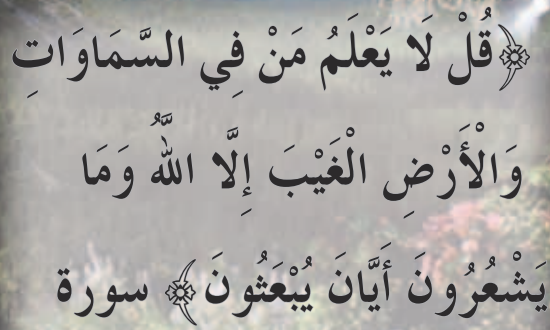 ﴿قُلْ لَا يَعْلَمُ مَنْ فِي السَّمَاوَاتِ
وَالْأَرْضِ الْغَيْبَ إِلَّا اللَّهُ وَمَا
يَشْعُرُونَ أَيَّانَ يُبْعَثُونَ﴾ سورة